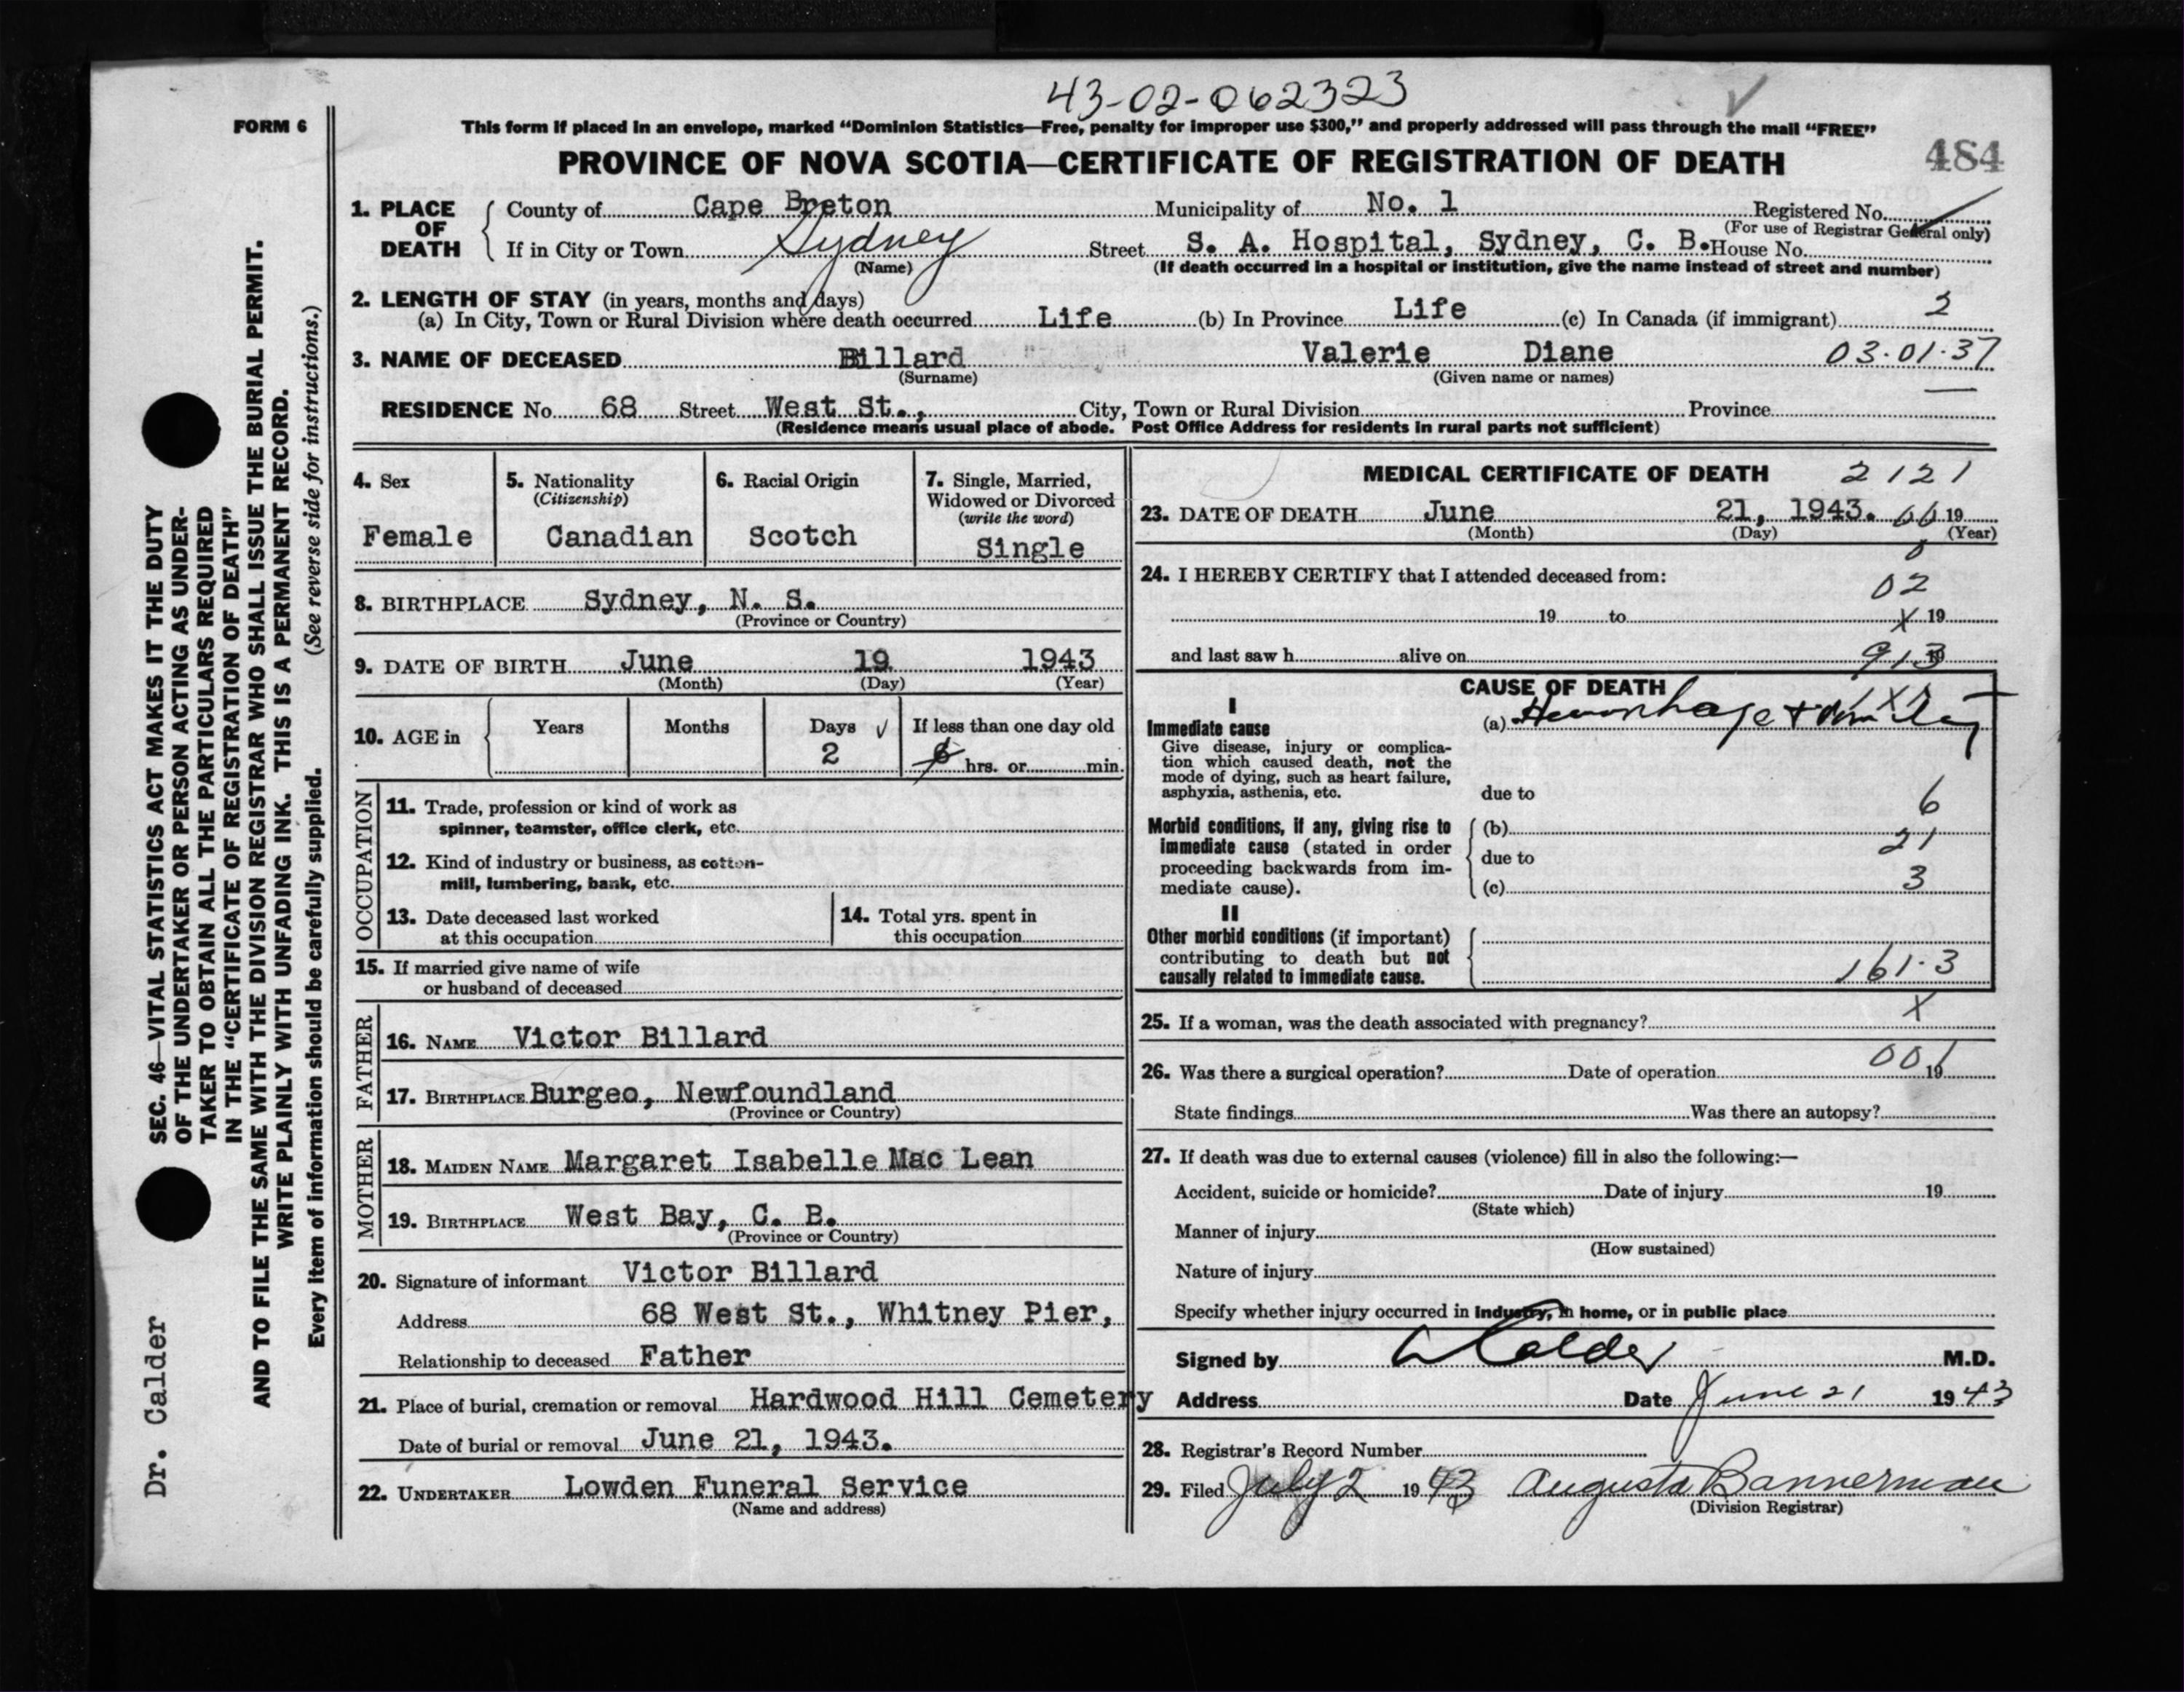 43-02-062323
FORM 6
This form if placed in an envelope, marked “Dominion Statistics—Free, penalty for improper use $300,” and properly addressed will pass through the mail “FREE”
PROVINCE OF NOVA SCOTIA—CERTIFICATE OF REGISTRATION OF DEATH
484
1. PLACE OF DEATH
County of Cape Breton Municipality of No. 1 Registered No.
(For use of Registrar General only)
If in City or Town Sydney Street S. A. Hospital, Sydney, C. B. House No.
(Name) (If death occurred in a hospital or institution, give the name instead of street and number)
2. LENGTH OF STAY (in years, months and days)
(a) In City, Town or Rural Division where death occurred Life (b) In Province Life (c) In Canada (if immigrant) 2
3. NAME OF DECEASED Billard Valerie Diane 03.01.37
(Surname) (Given name or names)
RESIDENCE No. 68 Street West St., City, Town or Rural Division Province
(Residence means usual place of abode. Post Office Address for residents in rural parts not sufficient)
4. Sex
Female
5. Nationality
(Citizenship)
Canadian
6. Racial Origin
Scotch
7. Single, Married,
Widowed or Divorced
(write the word)
Single
8. BIRTHPLACE Sydney, N. S.
(Province or Country)
9. DATE OF BIRTH June 19 1943
(Month) (Day) (Year)
10. AGE in
Years Months Days If less than one day old
2 hrs. or min.
OCCUPATION
11. Trade, profession or kind of work as
spinner, teamster, office clerk, etc.
12. Kind of industry or business, as cotton-
mill, lumbering, bank, etc.
13. Date deceased last worked
at this occupation
14. Total yrs. spent in
this occupation
15. If married give name of wife
or husband of deceased
FATHER
16. NAME Victor Billard
17. BIRTHPLACE Burgeo, Newfoundland
(Province or Country)
MOTHER
18. MAIDEN NAME Margaret Isabelle Mac Lean
19. BIRTHPLACE West Bay, C. B.
(Province or Country)
20. Signature of informant Victor Billard
Address 68 West St., Whitney Pier,
Relationship to deceased Father
21. Place of burial, cremation or removal Hardwood Hill Cemetery
Date of burial or removal June 21, 1943.
22. UNDERTAKER Lowden Funeral Service
(Name and address)
MEDICAL CERTIFICATE OF DEATH 2121
23. DATE OF DEATH June 21, 1943. 66 19
(Month) (Day) (Year)
24. I HEREBY CERTIFY that I attended deceased from:
02
19 to X 19
and last saw h alive on 913
CAUSE OF DEATH
I
Immediate cause
Give disease, injury or complica-
tion which caused death, not the
mode of dying, such as heart failure,
asphyxia, asthenia, etc.
(a) Hemorrhage +
due to 6
Morbid conditions, if any, giving rise to
immediate cause (stated in order
proceeding backwards from im-
mediate cause).
(b)
21
due to
(c) 3
II
Other morbid conditions (if important)
contributing to death but not
causally related to immediate cause.
161.3
25. If a woman, was the death associated with pregnancy? X
26. Was there a surgical operation? Date of operation 001 19
State findings Was there an autopsy?
27. If death was due to external causes (violence) fill in also the following:—
Accident, suicide or homicide? Date of injury 19
(State which)
Manner of injury
(How sustained)
Nature of injury
Specify whether injury occurred in industry, in home, or in public place
Signed by Calder M.D.
Address Date June 21 1943
28. Registrar's Record Number
29. Filed July 2 1943 Augusta Bannerman
(Division Registrar)
SEC. 46—VITAL STATISTICS ACT MAKES IT THE DUTY
OF THE UNDERTAKER OR PERSON ACTING AS UNDER-
TAKER TO OBTAIN ALL THE PARTICULARS REQUIRED
IN THE “CERTIFICATE OF REGISTRATION OF DEATH”
AND TO FILE THE SAME WITH THE DIVISION REGISTRAR WHO SHALL ISSUE THE BURIAL PERMIT.
WRITE PLAINLY WITH UNFADING INK. THIS IS A PERMANENT RECORD.
Every item of information should be carefully supplied. (See reverse side for instructions.)
Dr. Calder